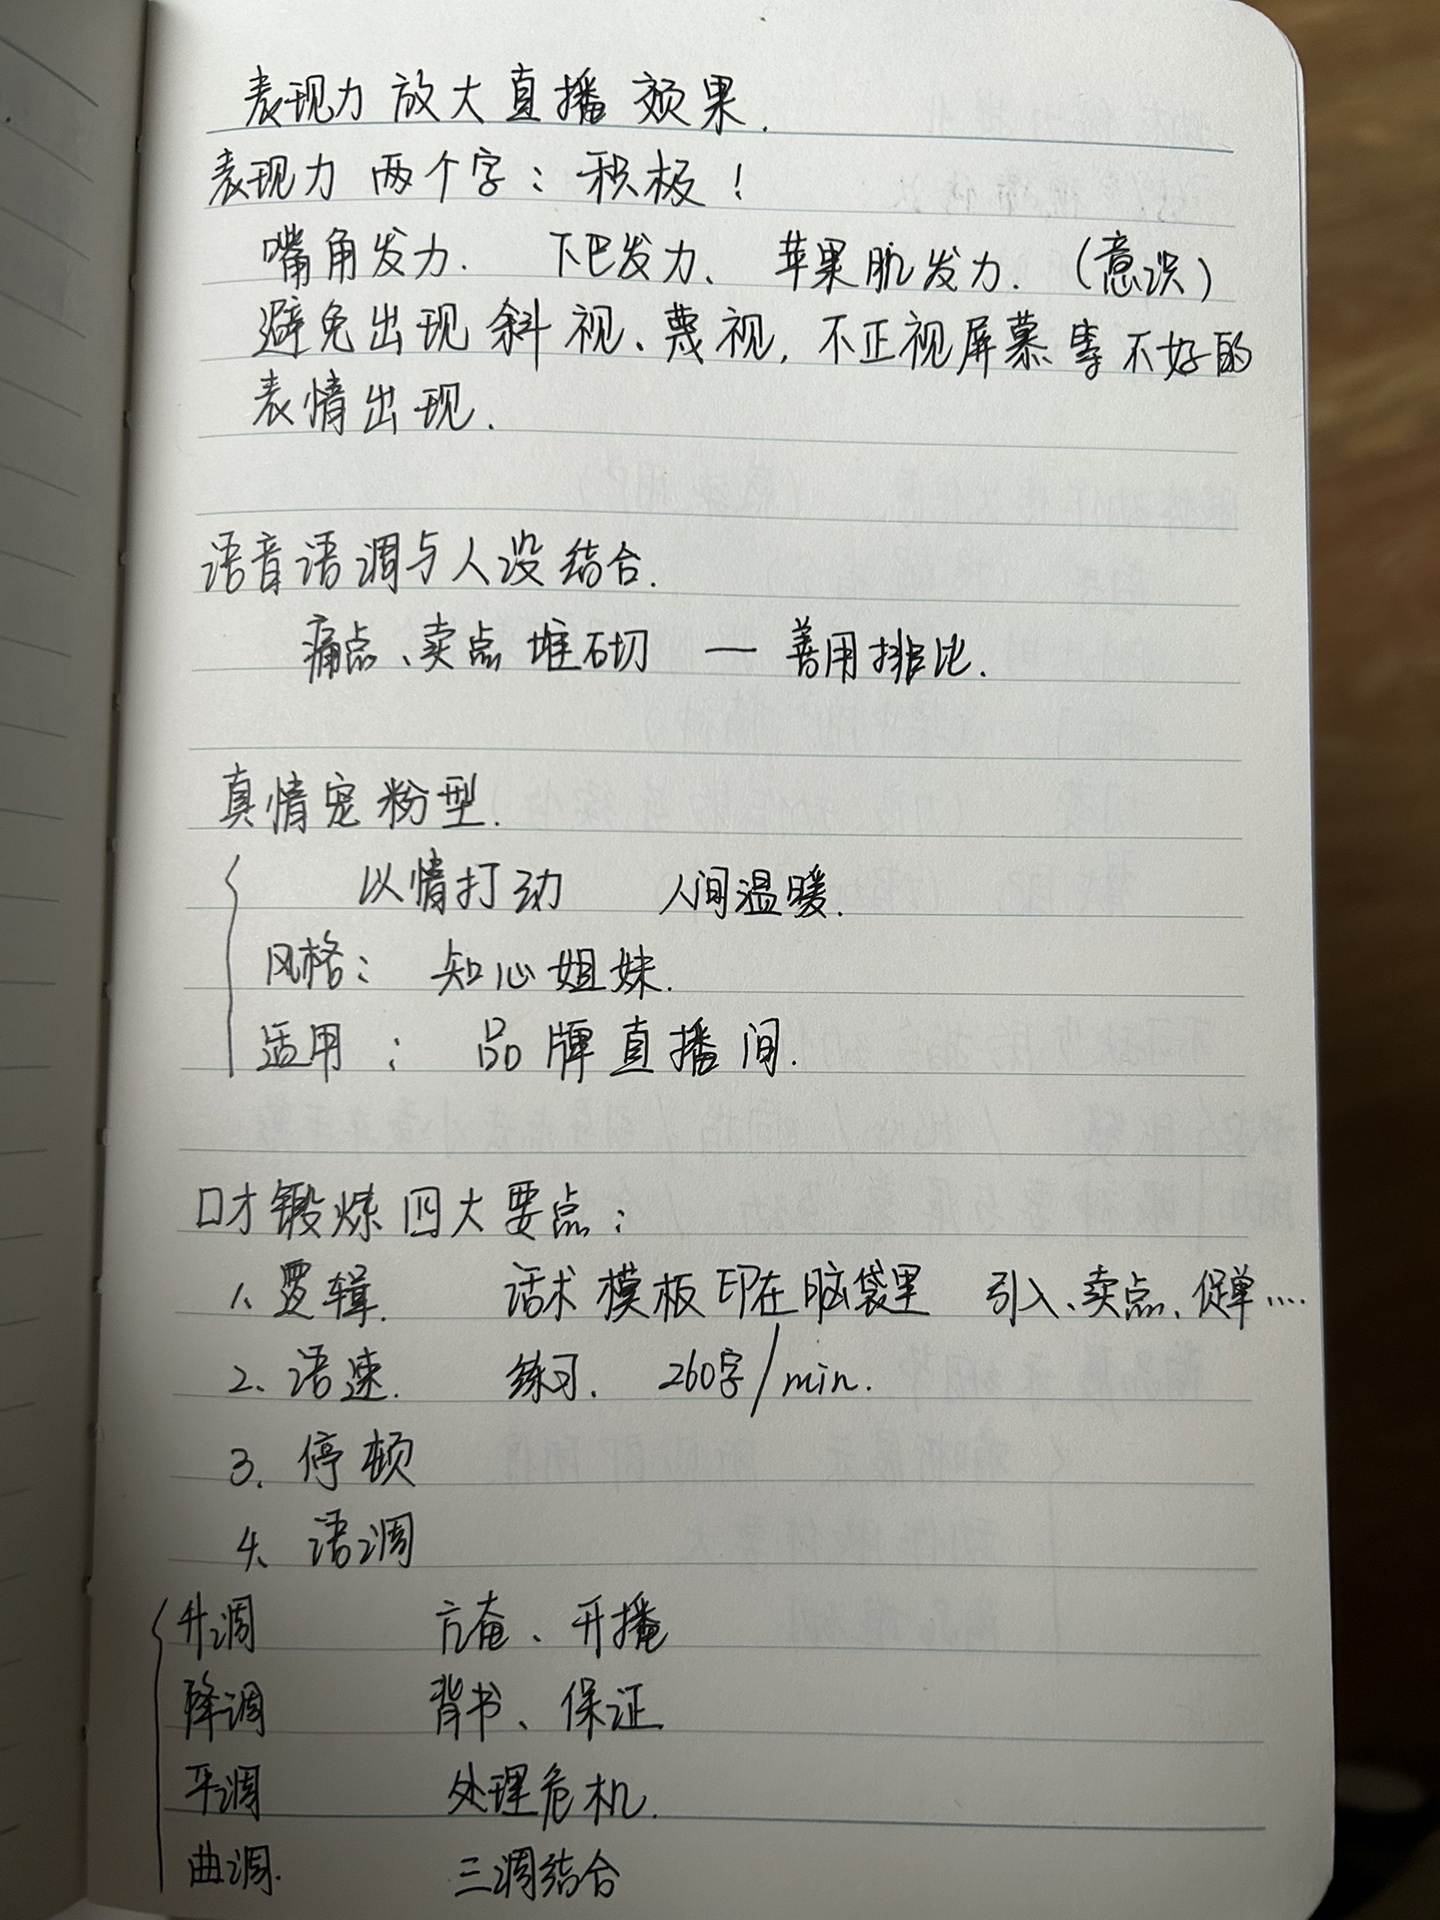 表现力 放大直播 效果.
表现力 两个字：积极！
嘴角发力. 下巴发力、 苹果肌发力.（意识）
避免出现斜视、蔑视, 不正视屏幕等不好的
表情出现.
语音语调与人设结合.
痛点、卖点 堆砌 — 善用排比.
真情宠粉型.
以情打动 人间温暖.
风格： 知心姐妹.
适用： 品牌直播间.
口才锻炼四大要点：
1、逻辑. 话术模板印在脑袋里 引入、卖点、促单....
2、语速. 练习. 260字/min.
3、停顿
4、语调
升调 、开播
降调 背书、保证
平调 处理危机.
曲调. 三调结合